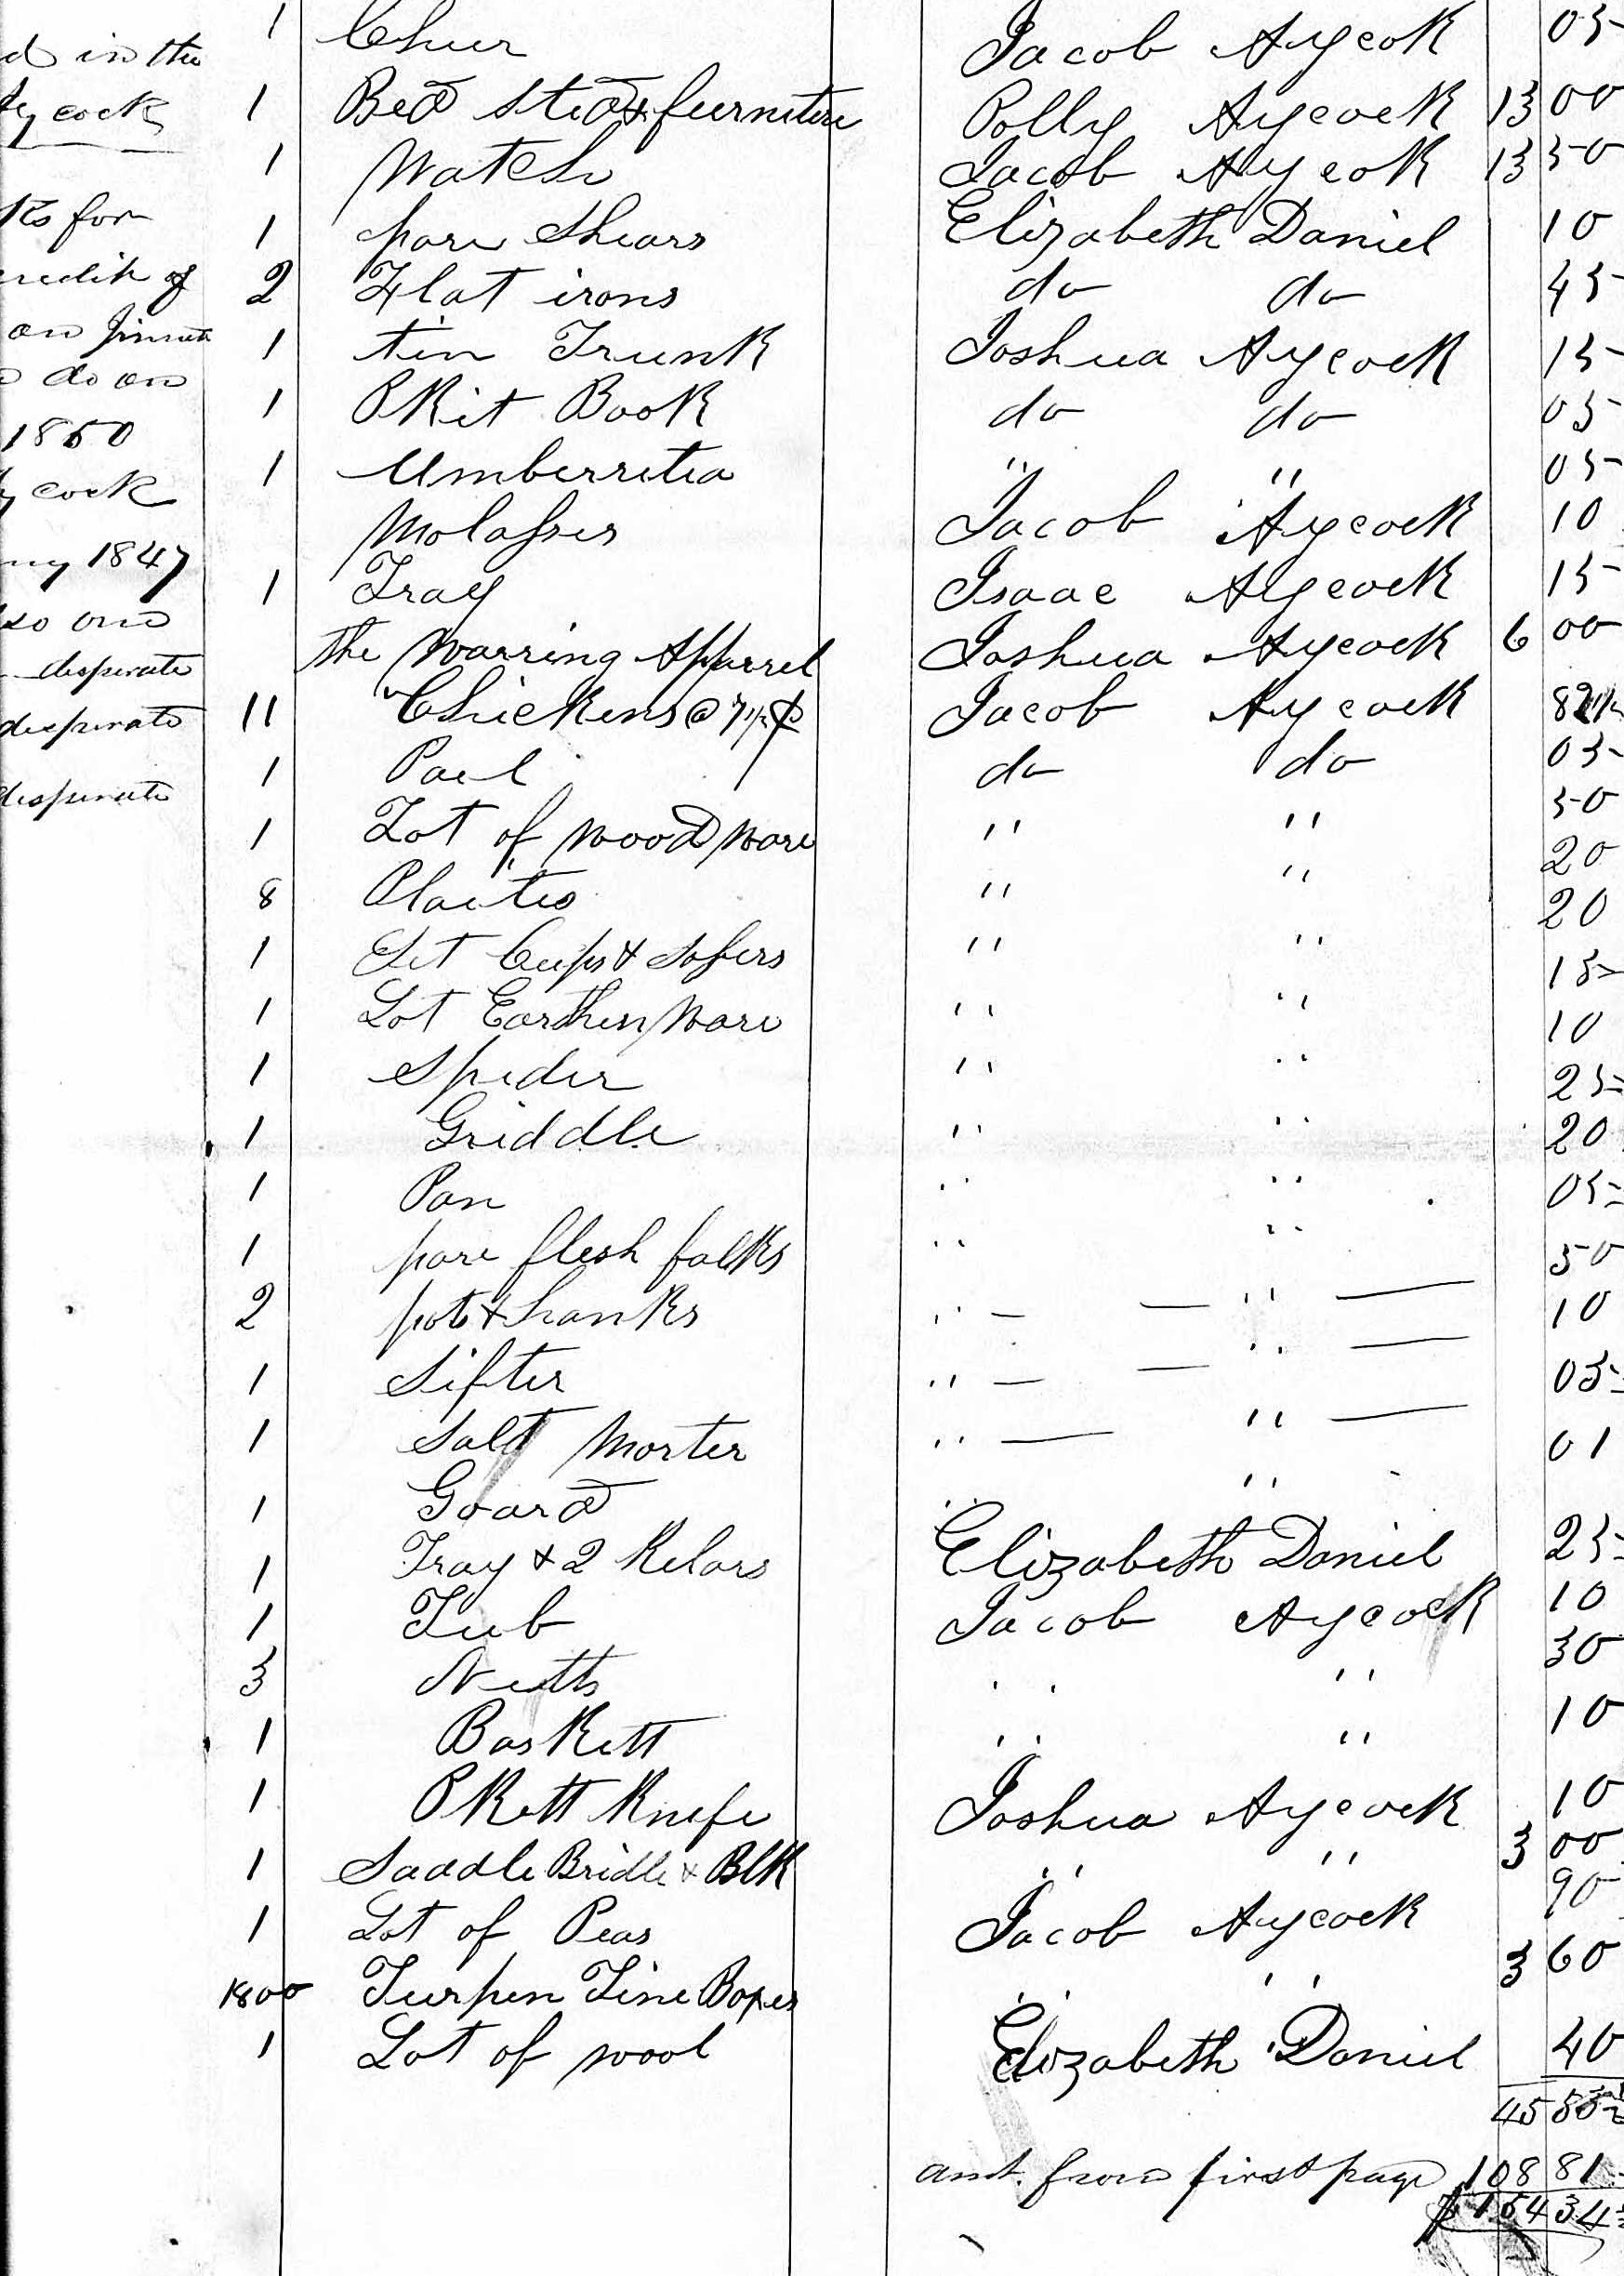 d in the
ycock
ks for
credit of
on
do on
1850
cock
ny 1847
so one
desperate
desperate
desperate
1 Chur Jacob Aycok 05
1 Bed sted & furniture Polly Aycock 13 00
1 Watch Jacob Aycok 13 50
1 pare Shears Elizabeth Daniel 10
2 Flat irons do do 45
1 tin Trunk Joshua Aycock 15
1 PKit Book do do 05
1 Umberrella " " 05
Molasses Jacob Aycock 10
1 Tray Isaac Aycock 15
the Warring Apparrel Joshua Aycock 6 00
11 Chickens @ 7 1/2 ¢ Jacob Aycock 82 1/2
1 Pael do do 05
1 Lot of wood ware " " 50
8 Plaites " " 20
1 Set Cups & Sosers " " 20
1 Lot Earthen Ware " " 15
1 Spider " " 10
1 Griddle " " 25
1 Pan " " 20
1 pare flesh falks " " 05
2 pots & hanks " — — " — 50
1 Sifter " — — " — 10
1 Salt Morter " — " — 05
1 Goard " " 01
1 Tray & 2 Kelars Elizabeth Daniel 25
1 Tub Jacob Aycock 10
3 Netts " " 30
1 Baskett " " 10
1 PKett Knife Joshua Aycock 10
1 Saddle Bridle & Blk " " 3 00
1 Lot of Peas Jacob Aycock 90
1800 Turpen Tine Boxes " " 3 60
1 Lot of wool Elizabeth Daniel 40
45 53 1/2
amt. from first page 108 81
$ 154 34 1/2